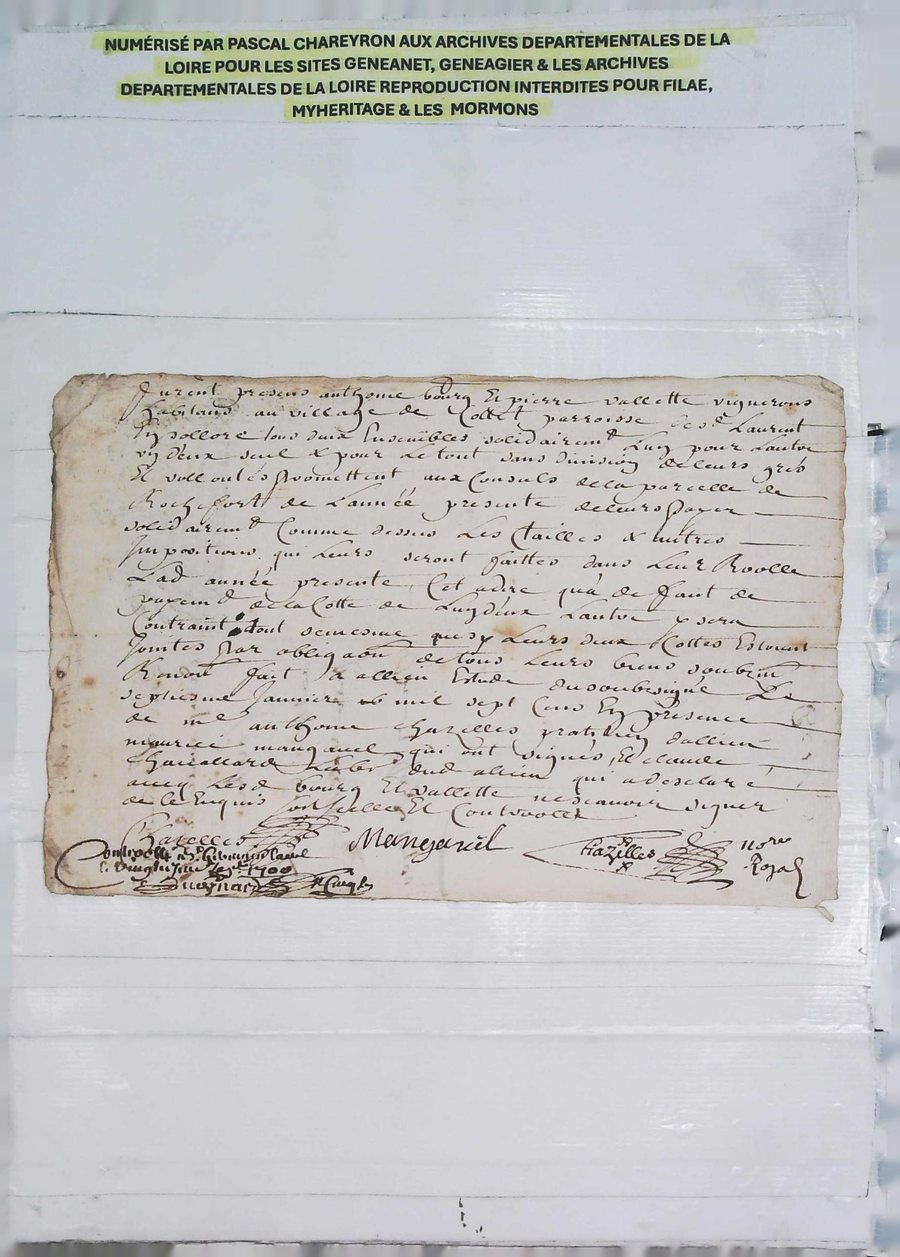 NUMÉRISÉ PAR PASCAL CHAREYRON AUX ARCHIVES DEPARTEMENTALES DE LA
LOIRE POUR LES SITES GENEANET, GENEAGIER & LES ARCHIVES
DEPARTEMENTALES DE LA LOIRE REPRODUCTION INTERDITES POUR FILAE,
MYHERITAGE & LES MORMONS
furent presens anthoine bourg Et pierre vallette vignerons
habitans au village de Collet parroisse de st Laurent
En sollore tous deux Ensembles solidairemt Lung pour Lautre
un deux seul & pour Le tout sans division de leurs grés
Et vollontés promettent aux Consuls de la parcelle de
Rochefort de Lannéé presente de leurs payer
solidairemt Comme dessus Les tailles & autres
Impositions qui leurs seront faittes dans Leur Roolle
Lad année presente Cet adire qua de faut de
payemt de la Cotte de Lung deux Lautre y sera
Contraint tout de mesme que sy Leurs deux Cottes Estoient
Jointes par obligaon de tous leurs biens soubzm
Renont fait a allieu Estude du soubsigné Le
septiesme Janvier mil sept Cens En presence
de me anthoine Chazelles praticien dallieu
maurice manganel qui ont signés, Et claude
dud allieu qui a desclaré
avec Lesd bourg Et vallette ne scavoir signer
de ce Enquis soit scelle Et Controolle
Chazelles
Manganil
Chazelles
nore
Royal
Controollé a
le 1700